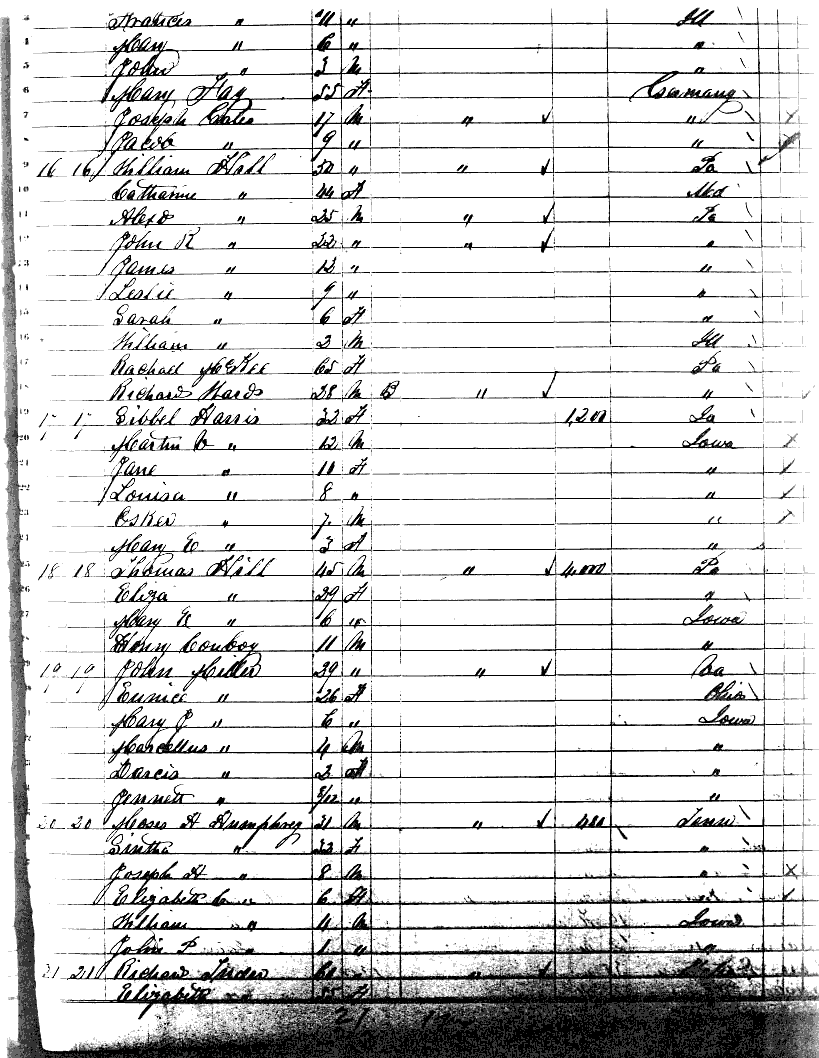 3 Frances " 11 " Ill
4 Mary " 6 " "
5 John " 3 M "
6 Mary Hay 55 F Germany
7 Joseph 17 M " "
8 Jacob " 9 " "
9 16 16 William Hill 50 " " Pa
10 Catharine " 44 F Md
11 Alexd " 25 M " Pa
12 John R " 22 " " "
13 James " 12 " "
14 Leslie " 9 " "
15 Sarah " 6 F "
16 William " 2 M Ill
17 Rachael McKee 65 F Pa
18 Richard Wards 28 M B " "
19 17 17 Sibbel Harris 32 F 1,200
20 Martin V " 12 M Iowa
21 Jane " 10 F "
22 Louisa " 8 " "
23 Esker " 7 M "
Mary E " 3 F "
25 18 18 Thomas Hill 45 M " 4,000 Pa
26 Eliza " 29 F "
27 Mary E " 6 " Iowa
Henry Conboy 11 M "
19 19 John Miller 39 " " Va
Eunice " 26 F Ohio
Mary J " 6 " Iowa
Marcellus " 4 M "
Darcis " 2 F "
Jennett " /12 " "
20 20 Moses H Humphrey 31 M " 400 Tenn
Sintha " 32 F "
Joseph H " 8 M "
Elizabeth C " 6 F "
William " 4 M Iowa
John P " 1 " "
21 21 Richard "
Elizabeth " 55 F
21